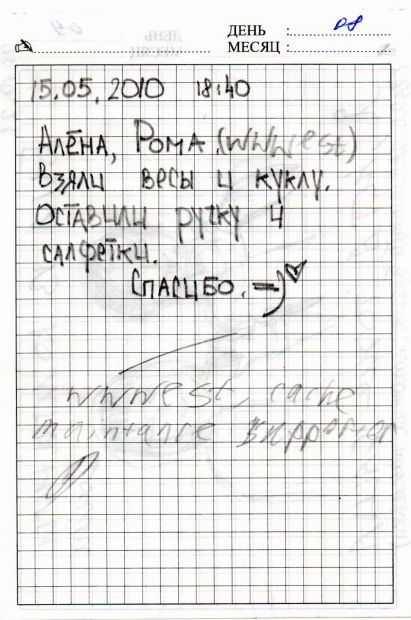 ДЕНЬ : 08
МЕСЯЦ :
15.05.2010 18:40
Алёна, Рома (wwwest)
Взяли весы и куклу.
Оставили ручку и
салфетки.
Спасибо. =)
wwwest, cache
maintance